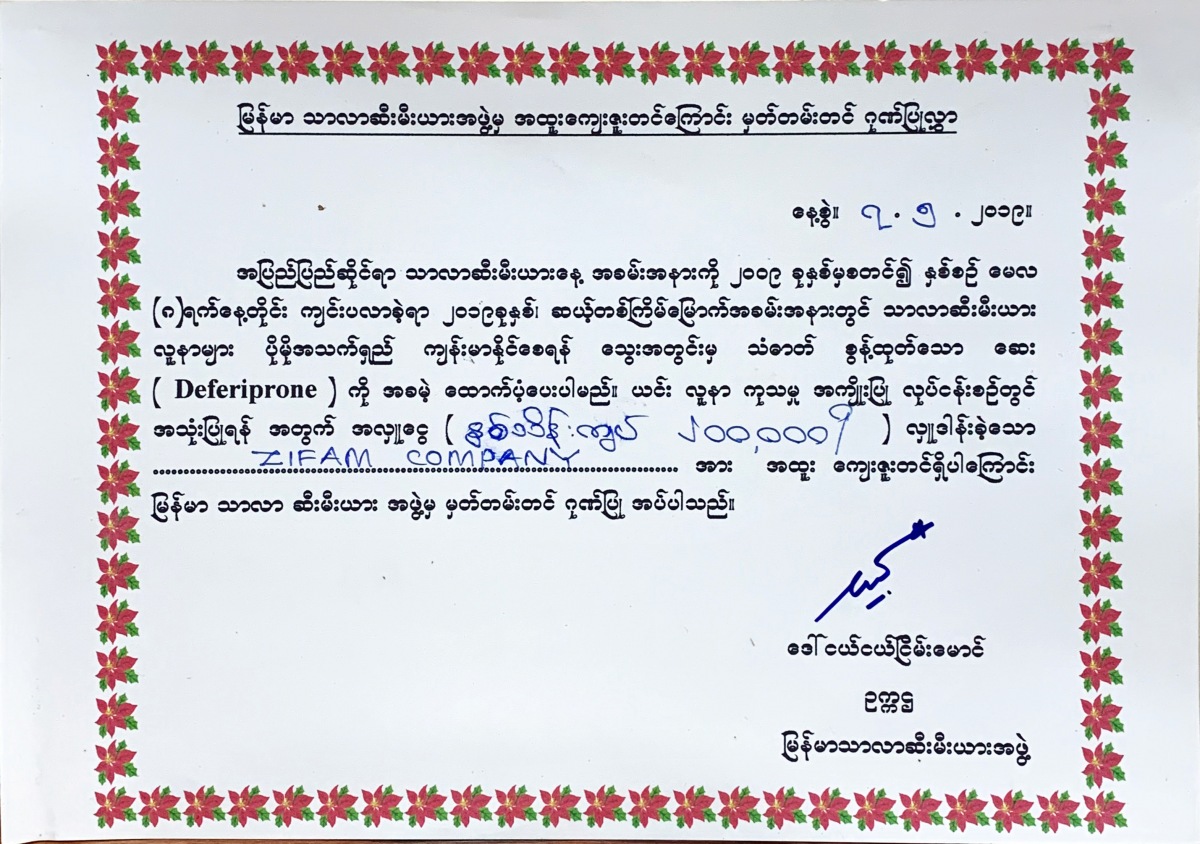 မြန်မာ သာလာဆီးမီးယားအဖွဲ့မှ အထူးကျေးဇူးတင်ကြောင်း မှတ်တမ်းတင် ဂုဏ်ပြုလွှာ
နေ့စွဲ။ ၇ . ၅ . ၂၀၁၉။
အပြည်ပြည်ဆိုင်ရာ သာလာဆီးမီးယားနေ့ အခမ်းအနားကို ၂၀၀၉ ခုနှစ်မှစတင်၍ နှစ်စဉ် မေလ
(၈)ရက်နေ့တိုင်း ကျင်းပလာခဲ့ရာ ၂၀၁၉ခုနှစ်၊ ဆယ့်တစ်ကြိမ်မြောက်အခမ်းအနားတွင် သာလာဆီးမီးယား
လူနာများ ပိုမိုအသက်ရှည် ကျန်းမာနိုင်စေရန် သွေးအတွင်းမှ သံဓာတ် စွန့်ထုတ်သော ဆေး
( Deferiprone ) ကို အခမဲ့ ထောက်ပံ့ပေးပါမည်။ ယင်း လူနာ ကုသမှု အကျိုးပြု လုပ်ငန်းစဉ်တွင်
အသုံးပြုရန် အတွက် အလှူငွေ ( နှစ်သိန်းကျပ် ၂၀၀,၀၀၀/ ) လှူဒါန်းခဲ့သော
ZIFAM COMPANY အား အထူး ကျေးဇူးတင်ရှိပါကြောင်း
မြန်မာ သာလာ ဆီးမီးယား အဖွဲ့မှ မှတ်တမ်းတင် ဂုဏ်ပြု အပ်ပါသည်။
ဒေါ်ငယ်ငယ်ငြိမ်းမောင်
ဥက္ကဋ္ဌ
မြန်မာသာလာဆီးမီးယားအဖွဲ့